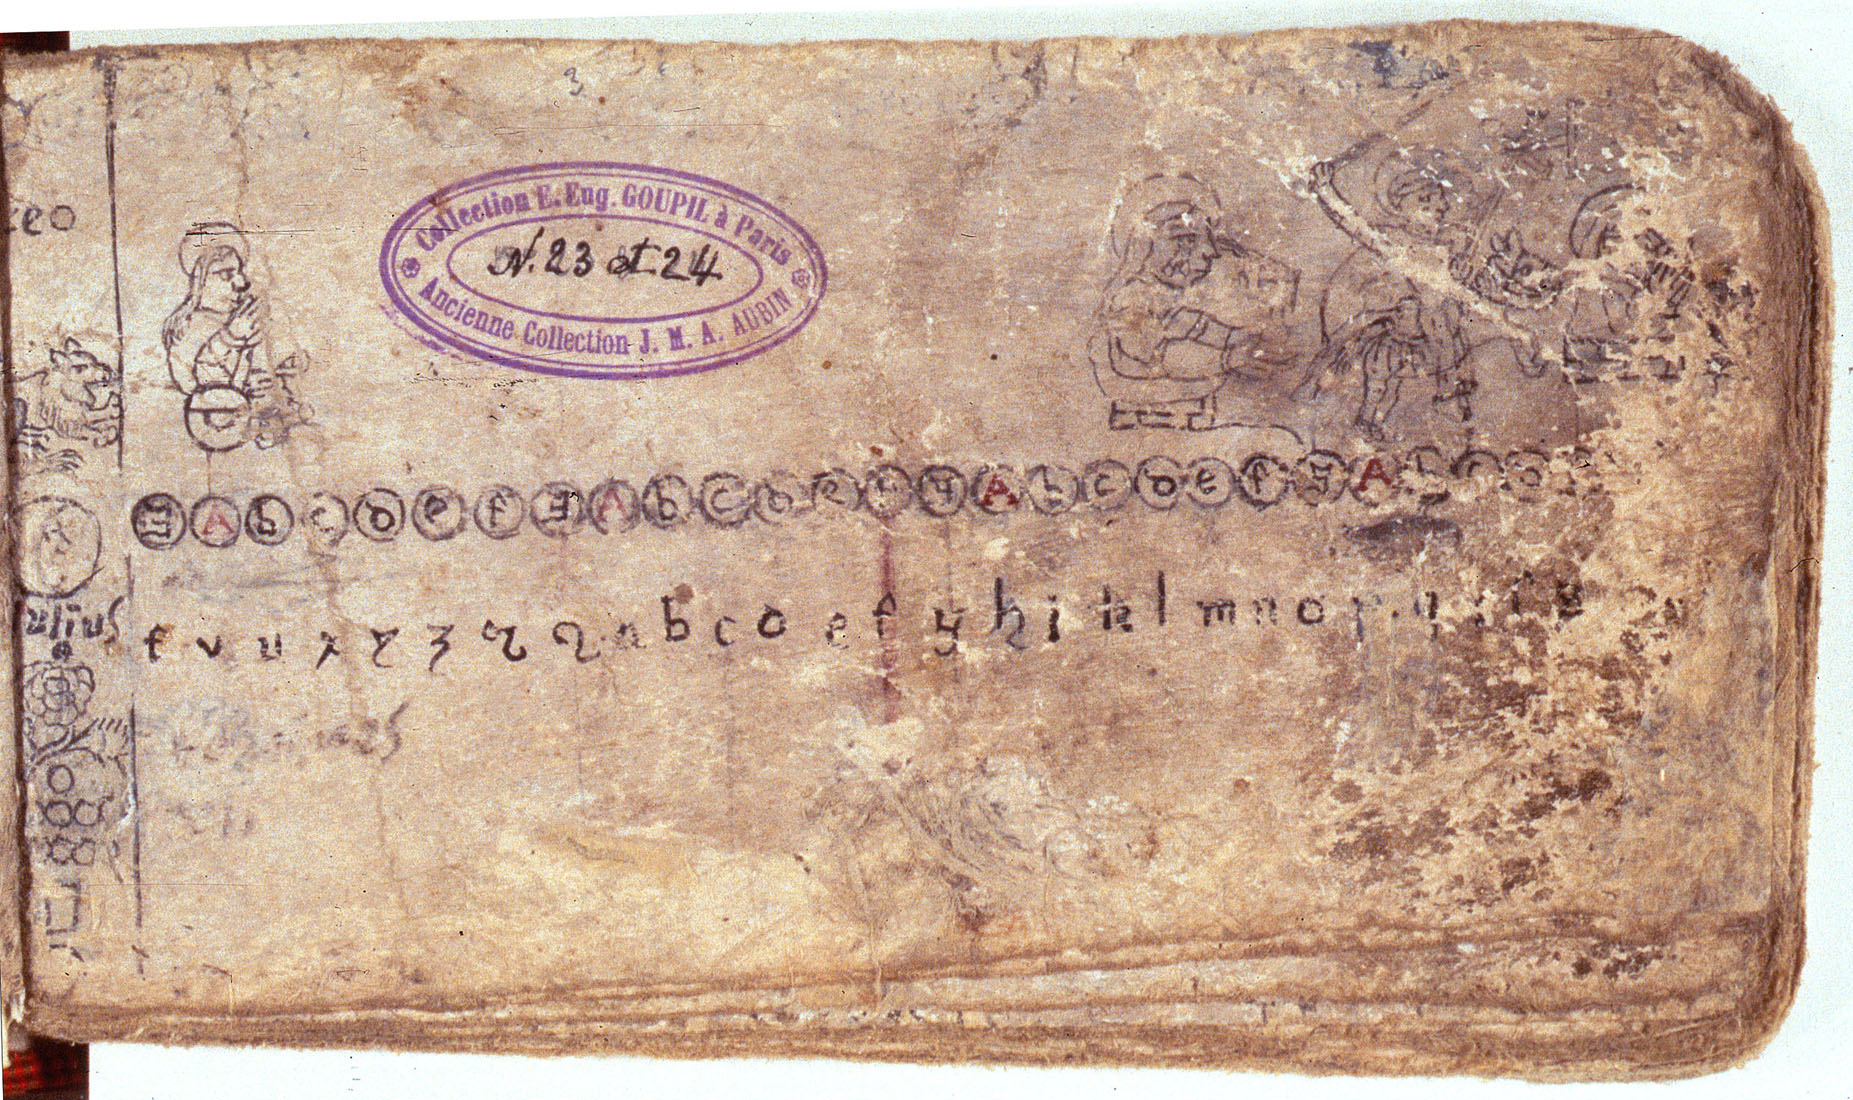 3
Collection E. Eug. GOUPIL à Paris
N. 23 et 24
Ancienne Collection J. M. A. AUBIN
eo
g A b c d e f g A b c d e f g A b c d e f g A b c d
ulius
f v u x y z b c d e f g h i k l m n o p q